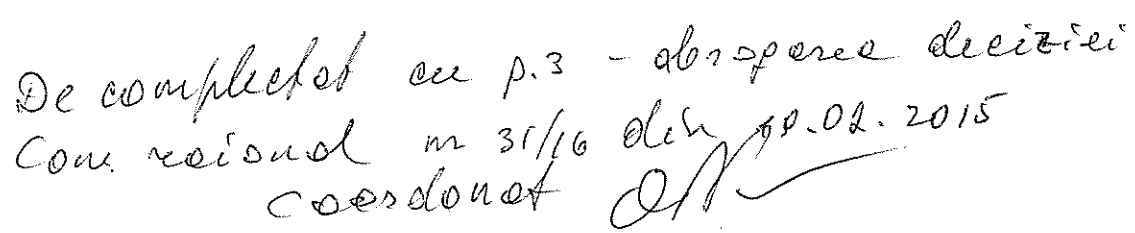 De complectat cu p.3 - abrogarea deciziei
Cons. raional nr 31/16 din 02.2015
Coordonat